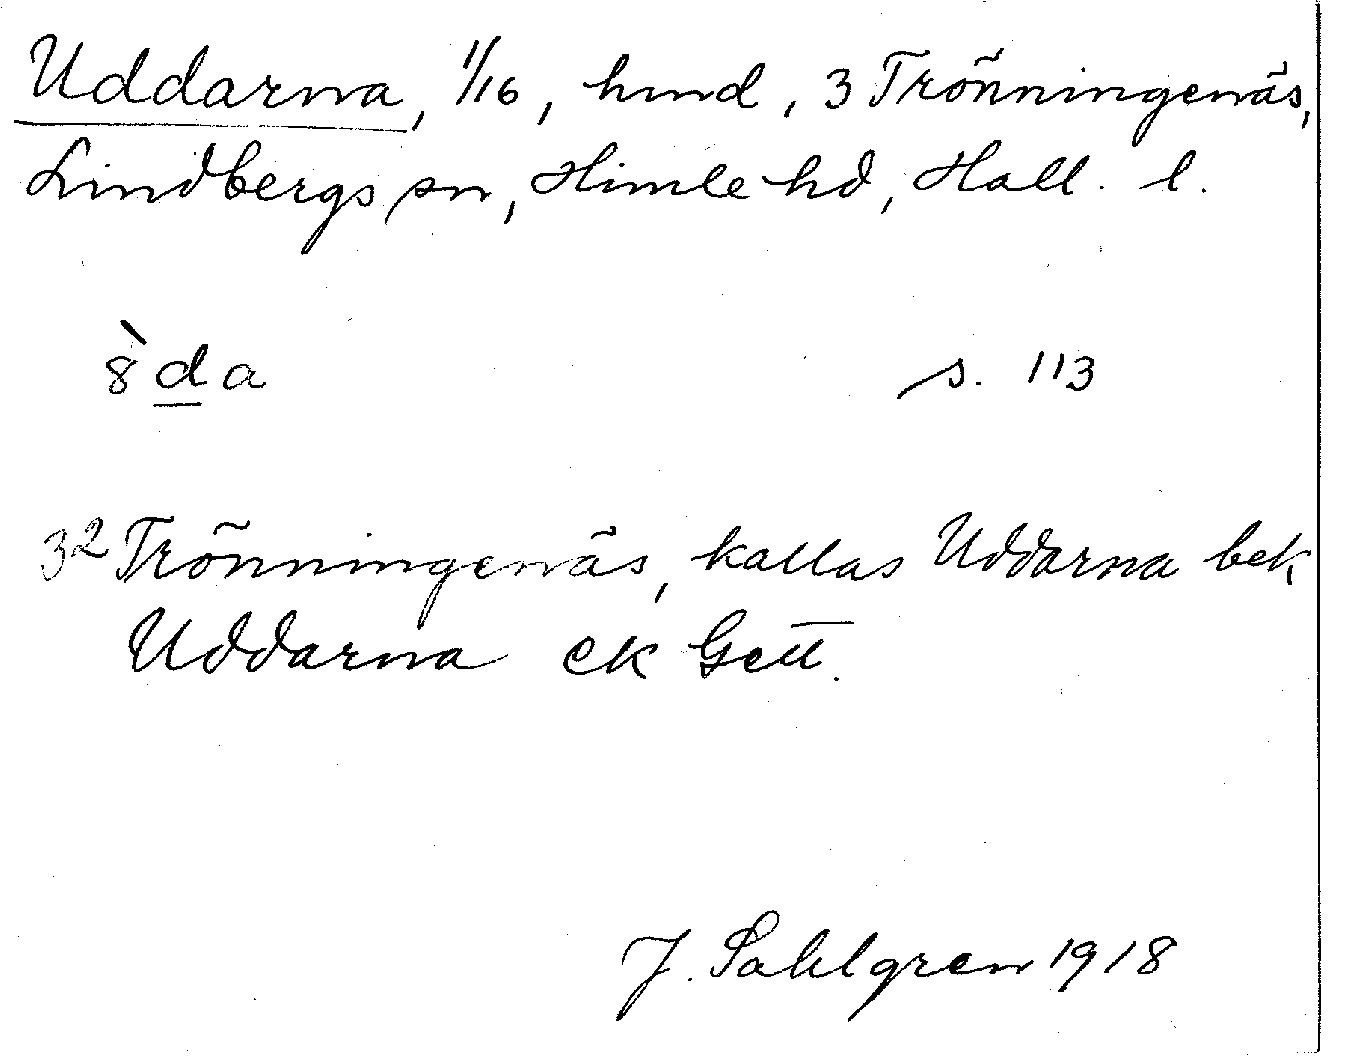 Uddarna, 1/16, hmd, 3 Trönningenäs,
Lindbergs sn, Himle hd, Hall. l.
8̀da s. 113
3² Trönningenäs, kallas Uddarna bek
Uddarna ek Gett.
J. Sahlgren 1918